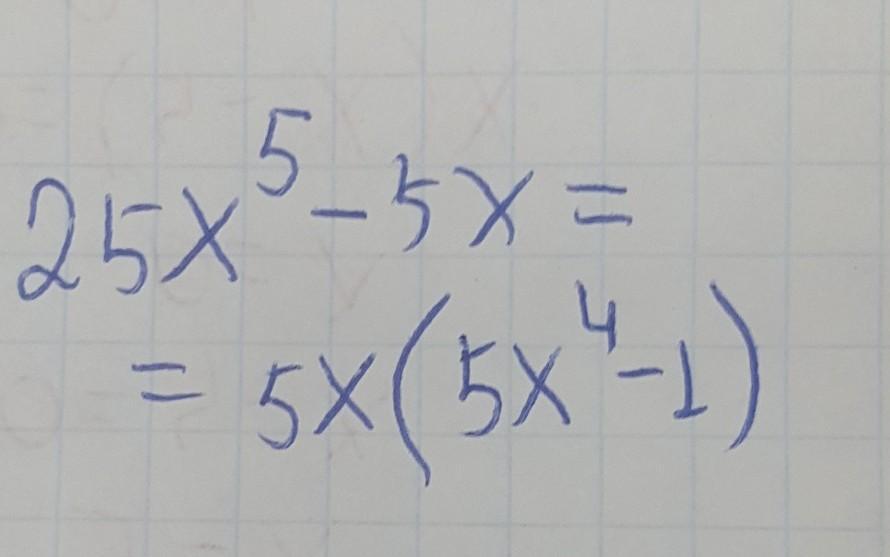 25x⁵ - 5x =
= 5x(5x⁴ - 1)